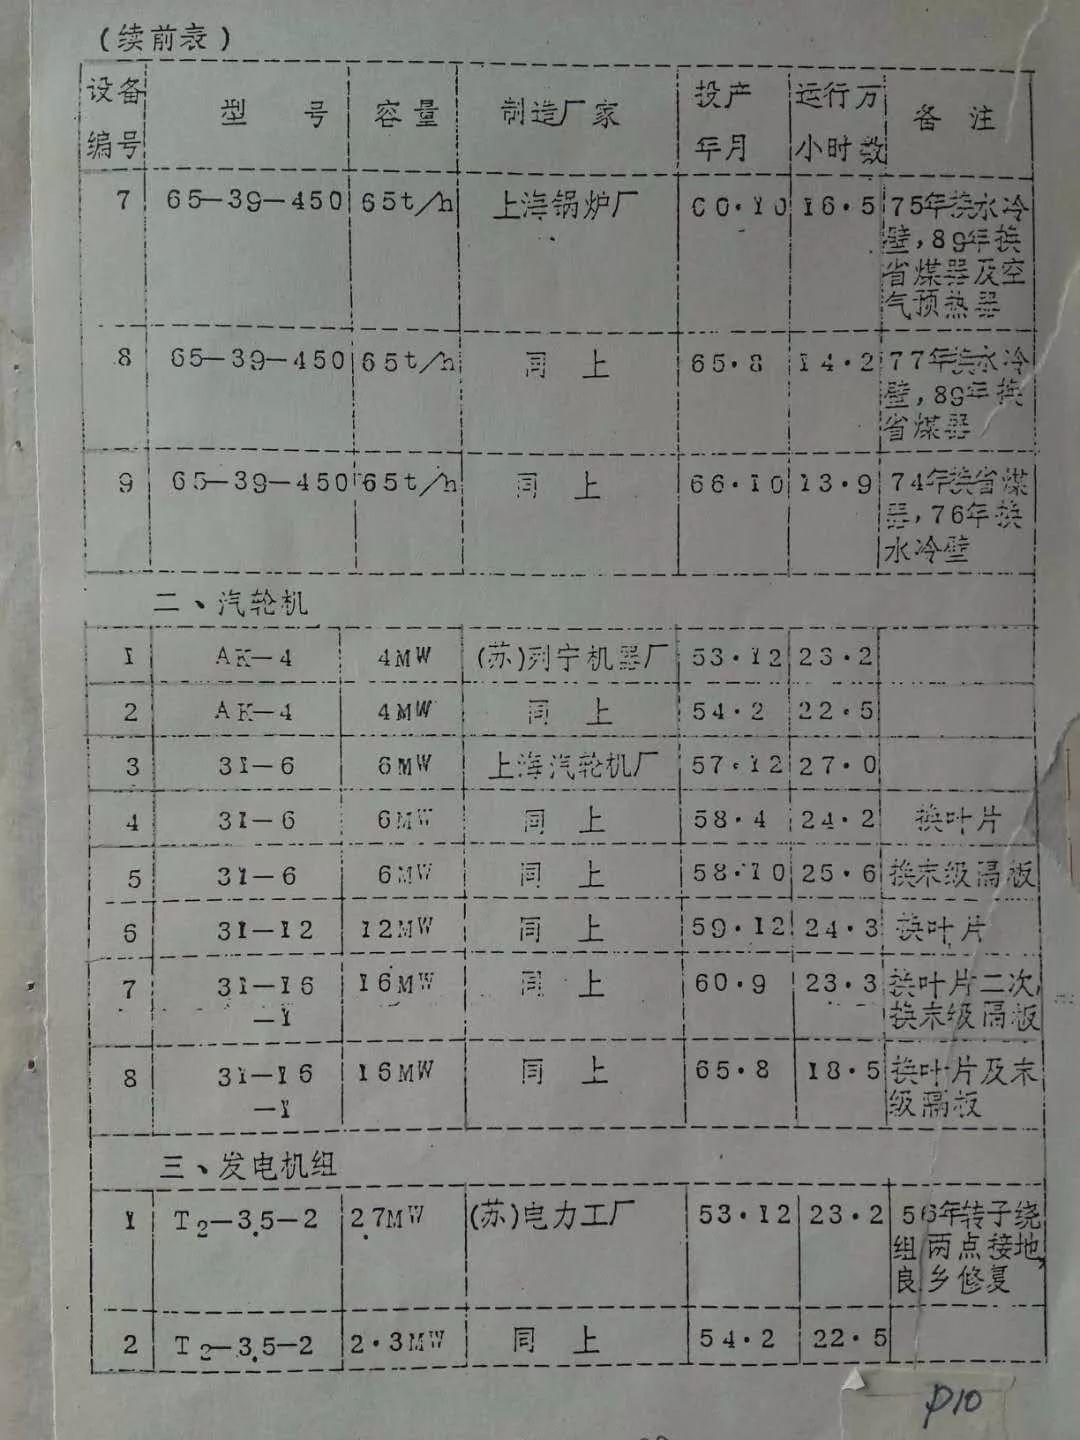 (续前表)
设备编号 型号 容量 制造厂家 投产年月 运行万小时数 备注
7 65—39—450 65t/h 上海锅炉厂 60·10 16·5 75年换水冷
壁,89年换
省煤器及空
气预热器
8 65—39—450 65t/h 同上 65·8 14·2 77年换水冷
壁,89年换
省煤器
9 65—39—450 65t/h 同上 66·10 13·9 74年换省煤
器,76年换
水冷壁
二、汽轮机
1 AK—4 4MW (苏)列宁机器厂 53·12 23·2
2 AK—4 4MW 同上 54·2 22·5
3 31—6 6MW 上海汽轮机厂 57·12 27·0
4 31—6 6MW 同上 58·4 24·2 换叶片
5 31—6 6MW 同上 58·10 25·6 换末级隔板
6 31—12 12MW 同上 59·12 24·3 换叶片
7 31—16 16MW 同上 60·9 23·3 换叶片二次,
—1 换末级隔板
8 31—16 16MW 同上 65·8 18·5 换叶片及末
—1 级隔板
三、发电机组
1 T2—3.5—2 2.7MW (苏)电力工厂 53·12 23·2 56年转子绕
组两点接地,
良乡修复
2 T2—3.5—2 2·3MW 同上 54·2 22·5
P10